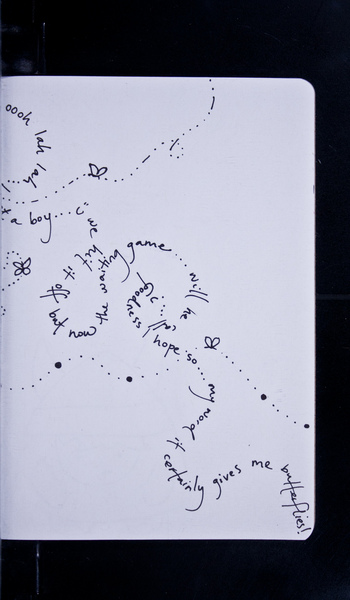 oooh lah lah
t a boy...
we hit it off but now the waiting game... will he call... goodness I hope so... my word it certainly gives me butterflies!